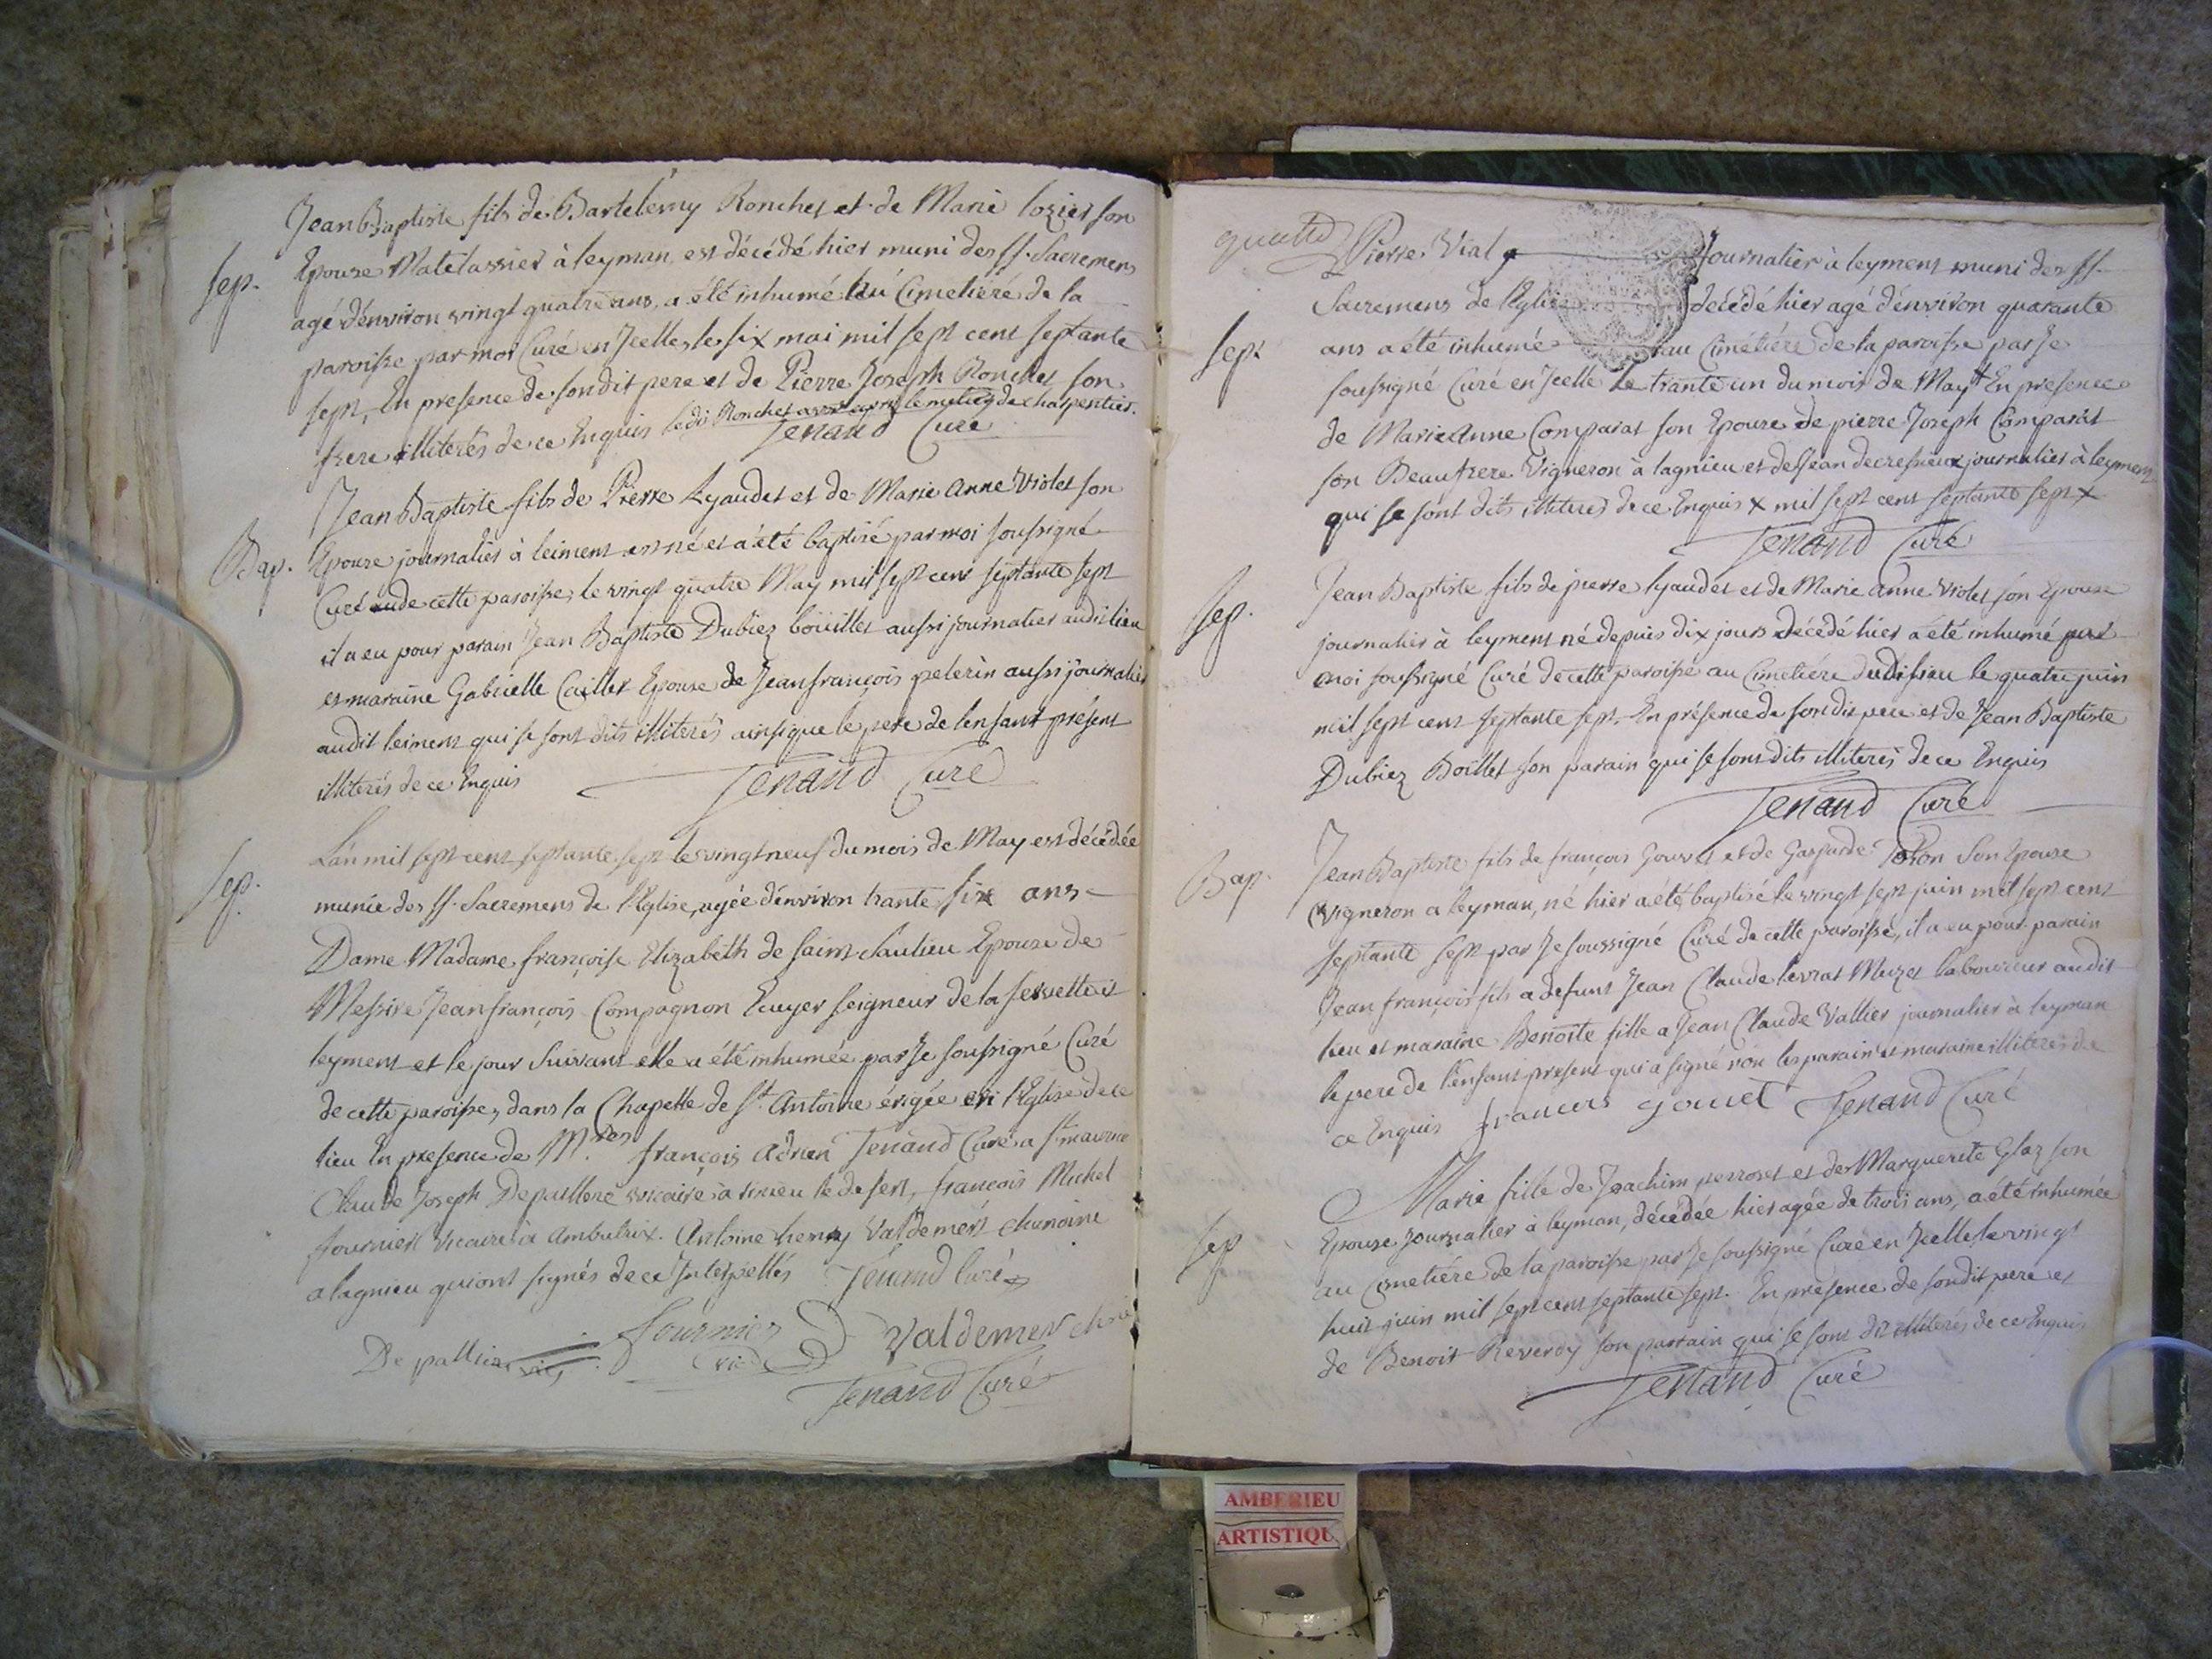 Jean Baptiste fils de Bartelemy Ronchet et de Marie lozier son
Sep. Epouse Matelassier à leyman, est décédé hier muni des SS. Sacremens
agé d'environ vingt quatre ans, a été inhumé au Cimetiére de la
paroisse par moi Curé en Jcelle, le six mai mil sept cent septante
sept, En presence de sondit pere et de Pierre Joseph Ronchet son
frere illiterés de ce Enquis ledit Ronchet le metier de charpentier.
Jenand Curé
Jean Baptiste fils de Pierre Lyaudet et de Marie Anne Violet son
Bap. Epouse journalier à leiment est né et a été baptisé par moi soussigné
Curé de cette paroisse, le vingt quatre May mil sept cent septante sept
il a eu pour parain Jean Baptiste Dubiez boüillet aussi journalier audit lieu
et maraine Gabrielle Caillet Epouse de Jean françois pelerin aussi journalier
audit leiment qui se sont dits illiterés ainsi que le pere de lenfant présent
illiterés de ce Enquis Jenand Curé
L'an mil sept cent septante sept le vingt neuf du mois de May est décédée
Sep. munie des SS. Sacremens de l'Eglise, agée d'environ trante six ans
Dame Madame françoise Elizabeth de saint Saulieu Epouse de
Messire Jean françois Compagnon Ecuyer seigneur de la servette et
leyment et le jour suivant elle a été inhumée par Je soussigné Curé
de cette paroisse, dans la Chapelle de St. Antoine érigée en l'Eglise de ce
lieu En presence de Mres françois Adrien Jenand Curé a St. maurice
Claude Joseph Depalliere vicaire à sinieu le desert, françois Michel
fournier Vicaire à Ambutrix. Antoine henry Valdemert chanoine
a lagnieu qui ont signés de ce Interpellés Jenand Curé
De pallier vic. fournier vic. Valdemer
Jenand Curé
quatre
Pierre Vial Journalier à leyment muni des SS.
Sacremens de l'Eglise décédé hier agé d'environ quarante
Sept ans a été inhumé au Cimétiére de la paroisse par Je
soussigné Curé en Jcelle le trante un du mois de May + En presence
de Marie Anne Comparat son Epouse de pierre Joseph Comparat
son Beaufrere Vigneron à lagnieu et de Jean decressieux journalier à leyment
qui se sont dits illiterés de ce Enquis x mil sept cent septante sept x
Jenand Curé
Jean Baptiste fils de pierre lyaudet et de Marie Anne Violet son Epouse
Sep. journalier à leyment né depuis dix jours décédé hier a été inhumé par
moi soussigné Curé de cette paroisse au Cimetiére dudit lieu le quatre juin
mil sept cent septante sept. En présence de sondit pere et de Jean Baptiste
Dubiez Boillet son parain qui se sont dits illiterés de ce Enquis
Jenand Curé
Bap. Jean Baptiste fils de françois Gouvet et de Gasparde son Epouse
vigneron a leyman, né hier a été baptisé le vingt sept juin mil sept cent
septante sept par Je soussigné Curé de cette paroisse, il a eu pour parain
Jean françois fils a defunt Jean Claude levrat Muzet laboureur audit
lieu et maraine Benoite fille a Jean Claude Vallier journalier à leyman
le pere de l'enfant present qui a signé non les parain et maraine illiterés de
ce Enquis francois gouvet Jenand Curé
Marie fille de Joachim perroset et de Marguerite Glaz son
Sep Epouse Journalier à leyman, décédée hier agée de trois ans, a été inhumée
au Cimetiére de la paroisse par Je soussigné Curé en Jcelle le vingt
huit juin mil sept cent septante sept. En presence de sondit pere et
de Benoit Reverdy son parrain qui se sont dit illiterés de ce Enquis
Jenand Curé
AMBERIEU
ARTISTIQU